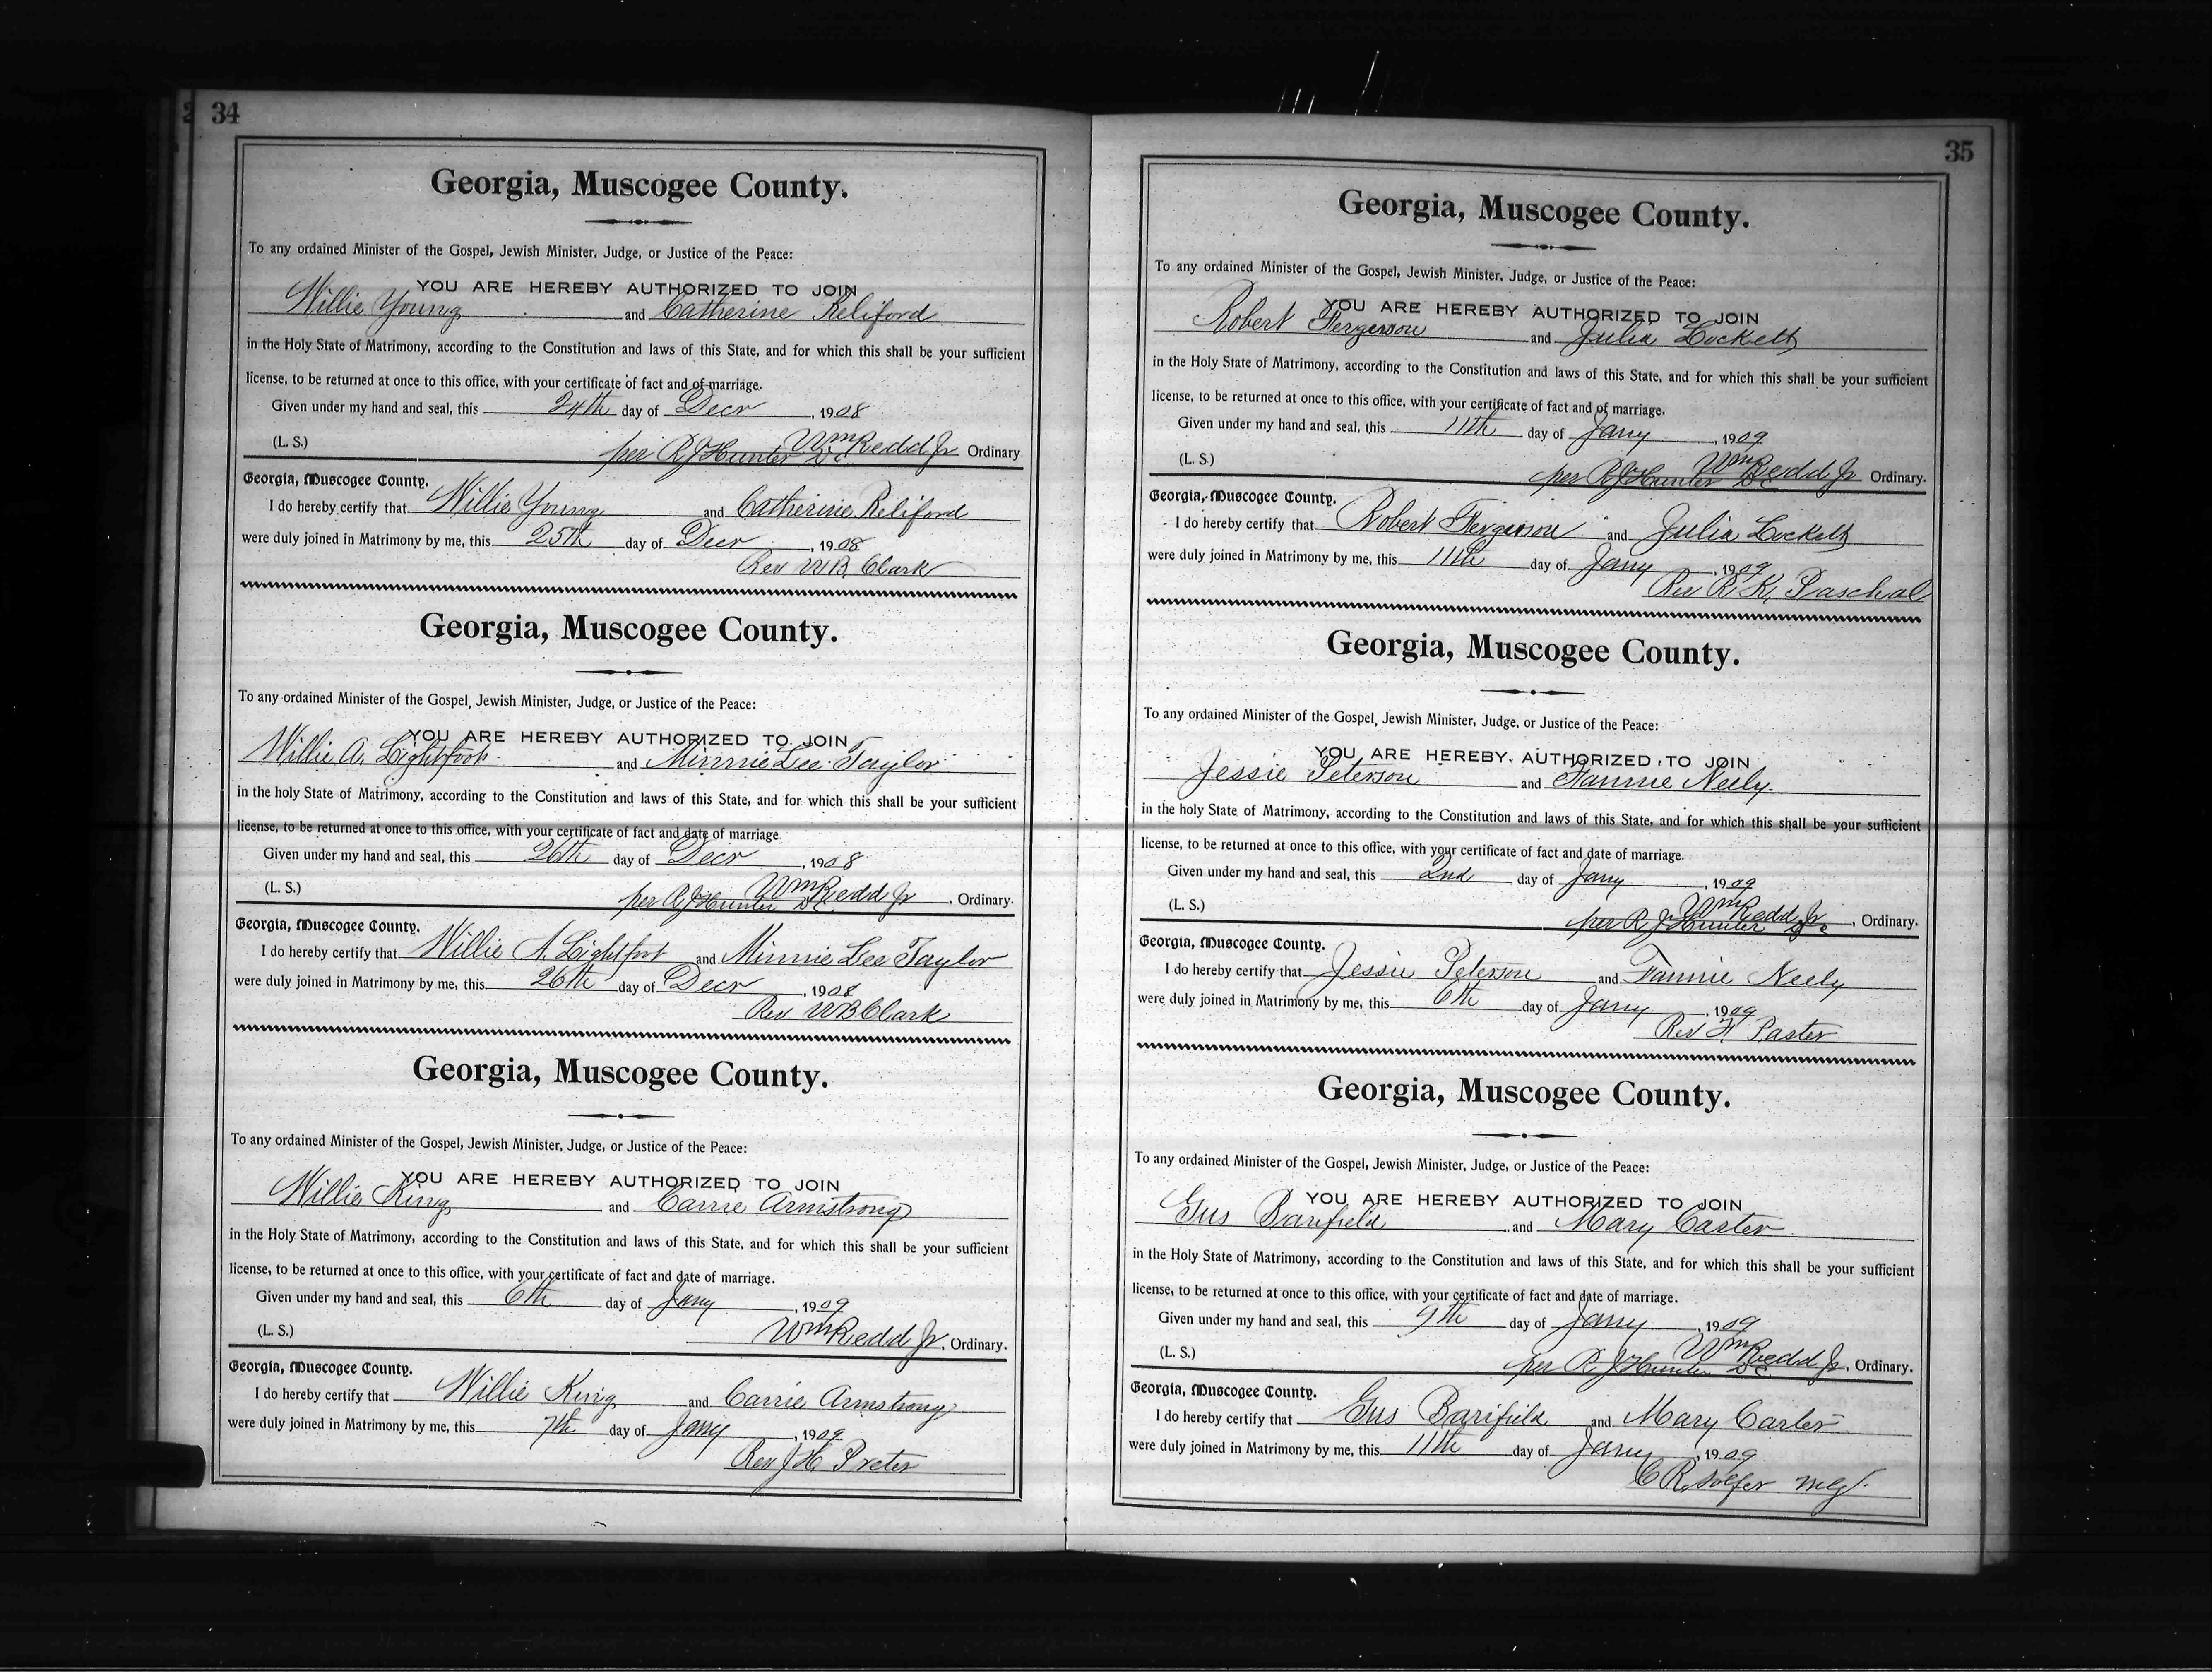 34
Georgia, Muscogee County.
To any ordained Minister of the Gospel, Jewish Minister, Judge, or Justice of the Peace:
YOU ARE HEREBY AUTHORIZED TO JOIN
Willie Young and Catherine Reliford
in the Holy State of Matrimony, according to the Constitution and laws of this State, and for which this shall be your sufficient
license, to be returned at once to this office, with your certificate of fact and of marriage.
Given under my hand and seal, this 24th day of Decr, 1908
(L. S.) Wm Redd Jr Ordinary
per R J Hunter D C
Georgia, Muscogee County.
I do hereby certify that Willie Young and Catherine Reliford
were duly joined in Matrimony by me, this 25th day of Decr, 1908
Rev W B Clark
Georgia, Muscogee County.
To any ordained Minister of the Gospel, Jewish Minister, Judge, or Justice of the Peace:
YOU ARE HEREBY AUTHORIZED TO JOIN
Willie A. Lightfoot and Minnie Lee Taylor
in the holy State of Matrimony, according to the Constitution and laws of this State, and for which this shall be your sufficient
license, to be returned at once to this office, with your certificate of fact and date of marriage.
Given under my hand and seal, this 26th day of Decr, 1908
(L. S.) Wm Redd Jr, Ordinary.
per R J Hunter D C
Georgia, Muscogee County.
I do hereby certify that Willie A. Lightfoot and Minnie Lee Taylor
were duly joined in Matrimony by me, this 26th day of Decr, 1908
Rev W B Clark
Georgia, Muscogee County.
To any ordained Minister of the Gospel, Jewish Minister, Judge, or Justice of the Peace:
YOU ARE HEREBY AUTHORIZED TO JOIN
Willie King and Carrie Armstrong
in the Holy State of Matrimony, according to the Constitution and laws of this State, and for which this shall be your sufficient
license, to be returned at once to this office, with your certificate of fact and date of marriage.
Given under my hand and seal, this 6th day of Jany, 1909
(L. S.) Wm Redd Jr, Ordinary.
Georgia, Muscogee County.
I do hereby certify that Willie King and Carrie Armstrong
were duly joined in Matrimony by me, this 7th day of Jany, 1909
Rev J H
35
Georgia, Muscogee County.
To any ordained Minister of the Gospel, Jewish Minister, Judge, or Justice of the Peace:
YOU ARE HEREBY AUTHORIZED TO JOIN
Robert Fergerson and Julia Lockett
in the Holy State of Matrimony, according to the Constitution and laws of this State, and for which this shall be your sufficient
license, to be returned at once to this office, with your certificate of fact and of marriage.
Given under my hand and seal, this 11th day of Jany, 1909
(L. S.) Wm Redd Jr Ordinary.
per R J Hunter D C
Georgia, Muscogee County.
I do hereby certify that Robert Fergerson and Julia Lockett
were duly joined in Matrimony by me, this 11th day of Jany, 1909
Rev R. K. Paschal
Georgia, Muscogee County.
To any ordained Minister of the Gospel, Jewish Minister, Judge, or Justice of the Peace:
YOU ARE HEREBY AUTHORIZED TO JOIN
Jessie Peterson and Fannie Neely.
in the holy State of Matrimony, according to the Constitution and laws of this State, and for which this shall be your sufficient
license, to be returned at once to this office, with your certificate of fact and date of marriage.
Given under my hand and seal, this 2nd day of Jany, 1909
(L. S.) Wm Redd Jr, Ordinary.
per R J Hunter D C
Georgia, Muscogee County.
I do hereby certify that Jessie Peterson and Fannie Neely
were duly joined in Matrimony by me, this 6th day of Jany, 1909
Rev Paster
Georgia, Muscogee County.
To any ordained Minister of the Gospel, Jewish Minister, Judge, or Justice of the Peace:
YOU ARE HEREBY AUTHORIZED TO JOIN
Gus Barifield and Mary Carter
in the Holy State of Matrimony, according to the Constitution and laws of this State, and for which this shall be your sufficient
license, to be returned at once to this office, with your certificate of fact and date of marriage.
Given under my hand and seal, this 9th day of Jany, 1909
(L. S.) Wm Redd Jr, Ordinary.
per R J Hunter D C
Georgia, Muscogee County.
I do hereby certify that Gus Barifield and Mary Carter
were duly joined in Matrimony by me, this 11th day of Jany, 1909
C R